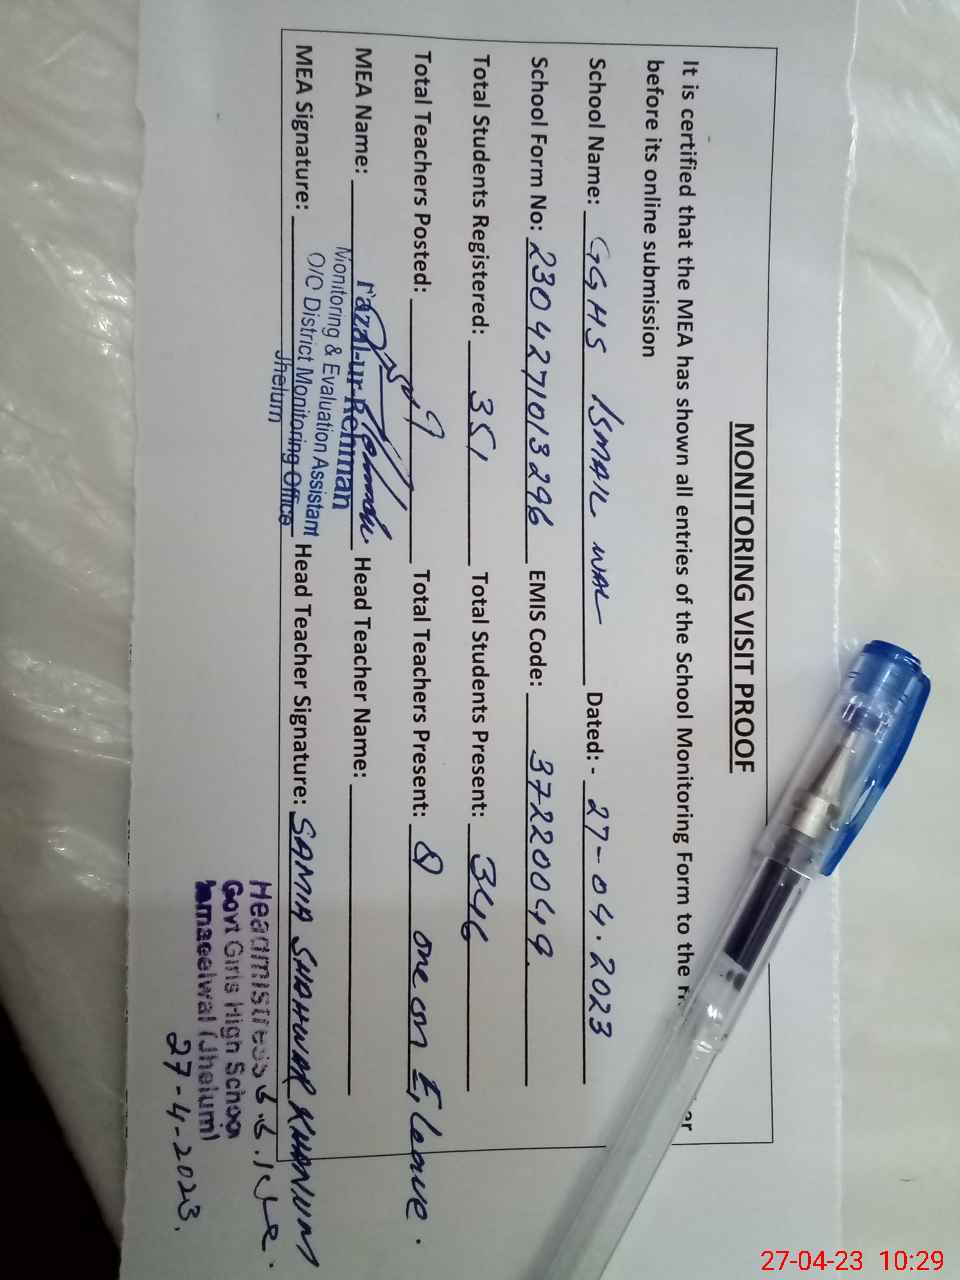 MONITORING VISIT PROOF
It is certified that the MEA has shown all entries of the School Monitoring Form to the
before its online submission
School Name: GGHS ISMAIL WAL Dated:- 27-04.2023
School Form No: 2304271013296 EMIS Code: 37220049.
Total Students Registered: 351 Total Students Present: 346
Total Teachers Posted: 9 Total Teachers Present: 8 one on E, leave.
MEA Name: Head Teacher Name:
Fazal-ur-Rehman
Monitoring & Evaluation Assistant
O/C District Monitoring Office
Jhelum
MEA Signature: Head Teacher Signature: SAMIA SHAHWAR KHANUM
Headmistress
Govt Girls High School
Ismaeelwal (Jhelum)
27-4-2023.
27-04-23 10:29